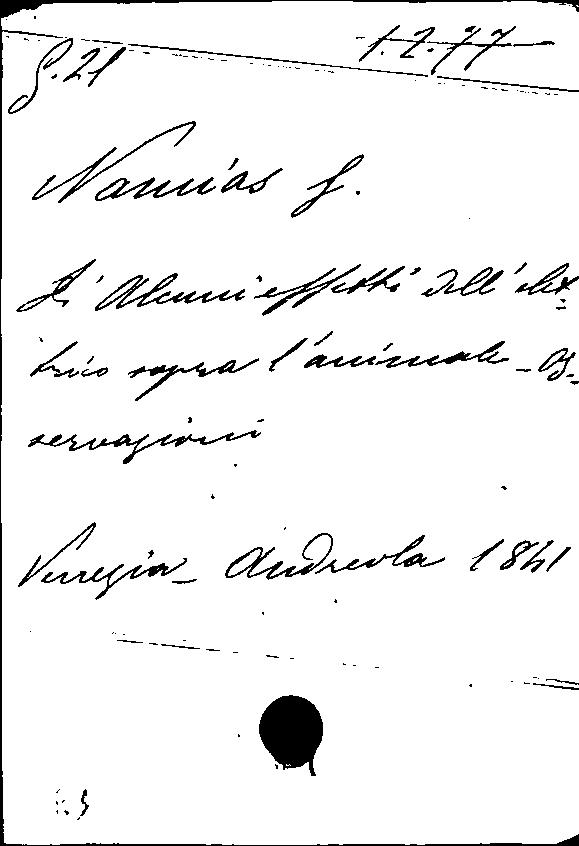 S.21 1.2.77
Namias G.
Di Alcuni effetti dell'elet
trico sopra l'animale - Os-
servazioni
Venezia - Andreola 1841